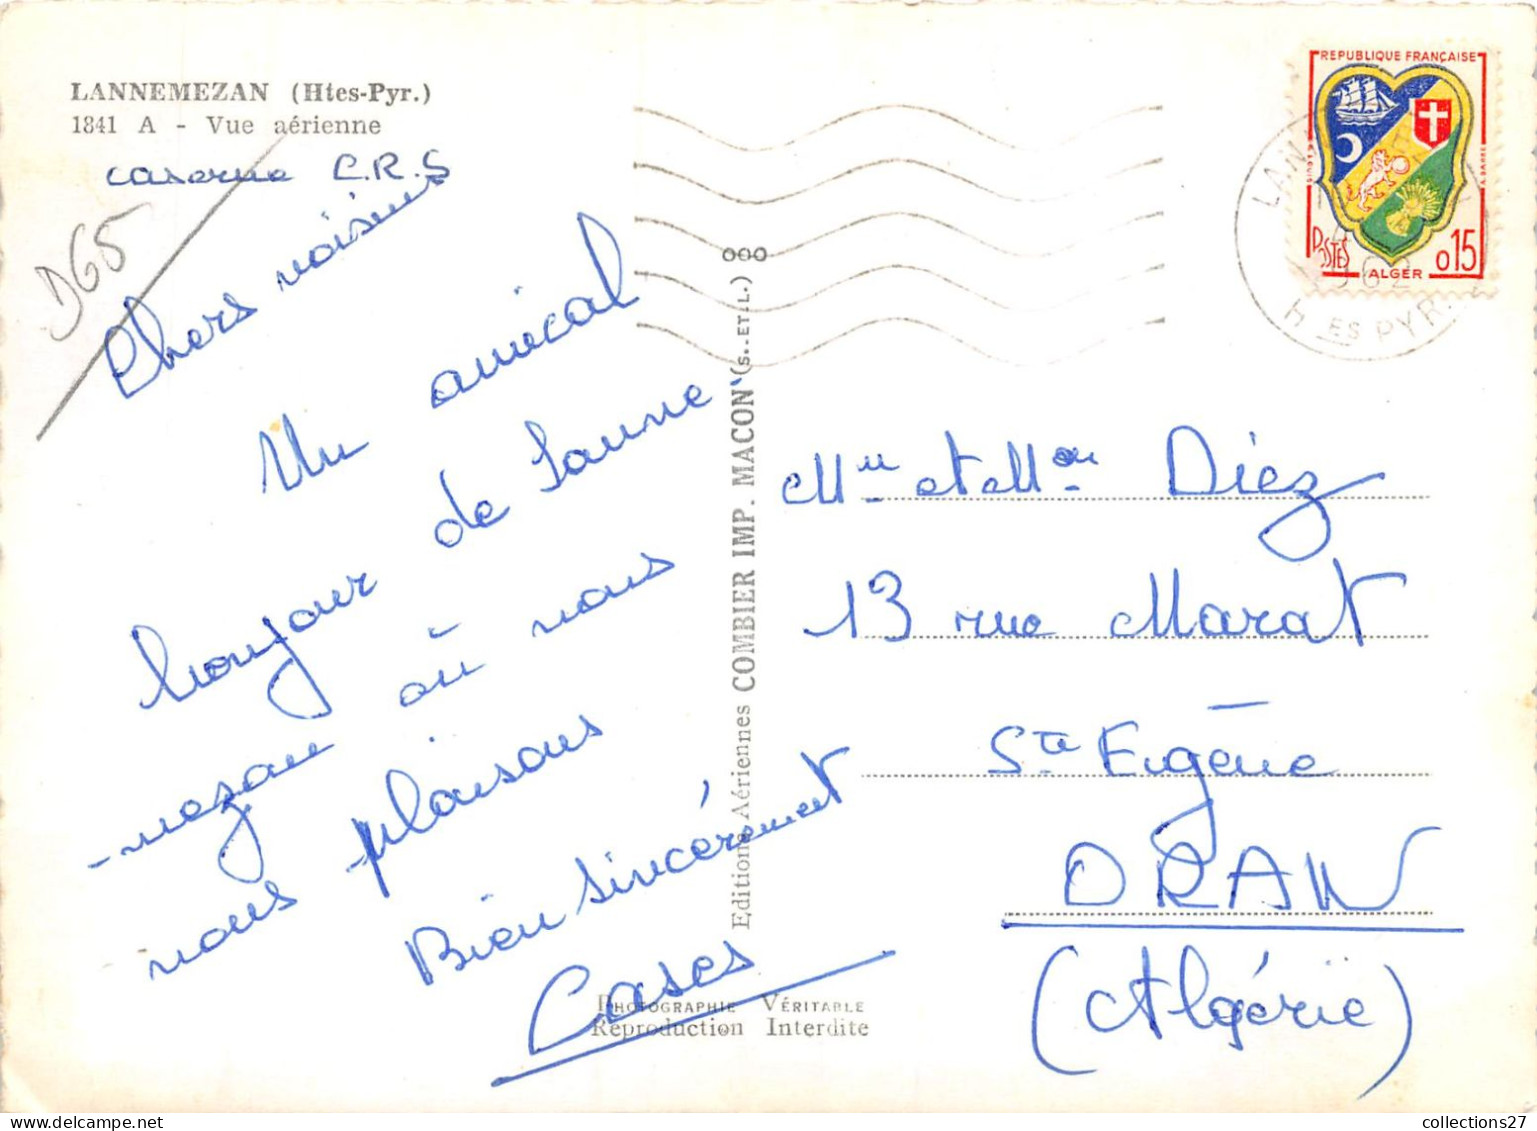 LANNEMEZAN (Htes-Pyr.)
1841 A - Vue aérienne
caserne C.R.S
D65
Chers voisins
Un amical
bonjour de Lanne-
-mezan où nous
nous plaisons
Bien sincèrement
Cases
Editions Aériennes COMBIER IMP. MACON (S.-ET-L.)
PHOTOGRAPHIE VÉRITABLE
Reproduction Interdite
REPUBLIQUE FRANÇAISE
POSTES
ALGER
0,15
LANN
1962
HES PYR.
Mr et Mme Diez
13 rue Marat
Ste Eugène
ORAN
(Algérie)
collections27